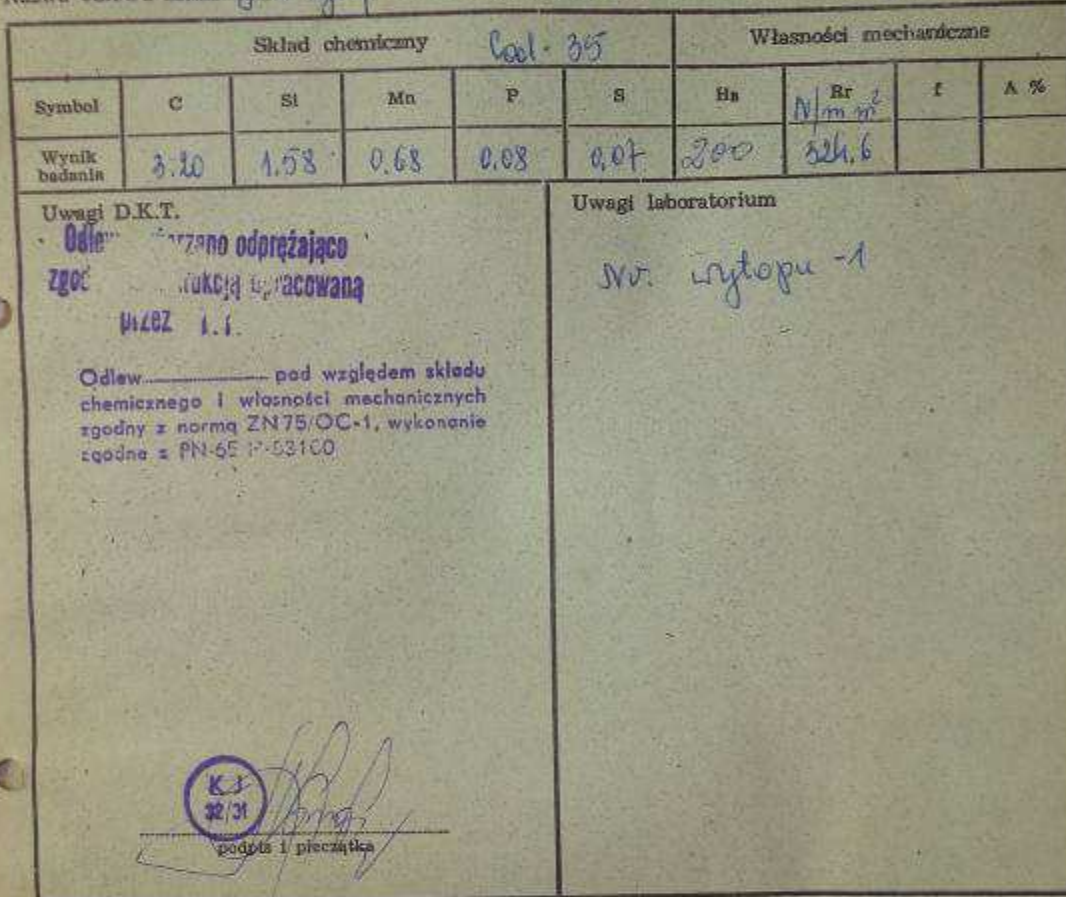 Skład chemiczny
Własności mechaniczne
Symbol C Si Mn P S HB Rr N/mm² f A %
Wynik badania 3.20 1.58 0.68 0.08 0,07 200 324,6
Uwagi D.K.T.
odprężająco
opracowaną
przez
Odlew pod względem składu
chemicznego i własności mechanicznych
zgodny z normą ZN75/OC-1, wykonanie
zgodne z PN-65
K J
32/31
podpis i pieczątka
Uwagi laboratorium
Nr. wytopu -1